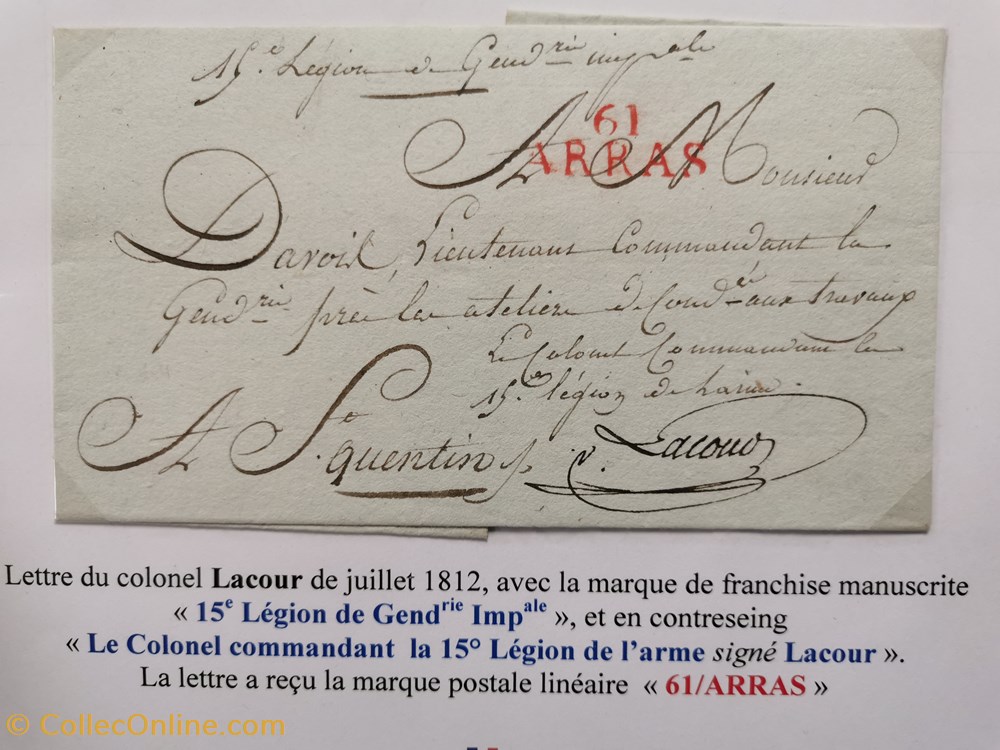 15.e Légion de Gend.rie imp.ale
61
ARRAS
A Monsieur
Davoil, Lieutenant Commandant la
Gend.rie près les ateliers de Cond.és aux travaux
Le Colonel Commandant la
15.e légion de l'arme.
A St. quentin
Lacour
Lettre du colonel Lacour de juillet 1812, avec la marque de franchise manuscrite
« 15e Légion de Gendrie Impale », et en contreseing
« Le Colonel commandant la 15° Légion de l'arme signé Lacour ».
La lettre a reçu la marque postale linéaire « 61/ARRAS »
© CollecOnline.com